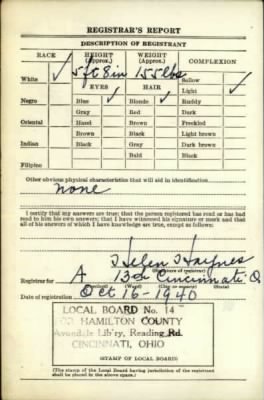 REGISTRAR'S REPORT
DESCRIPTION OF REGISTRANT
RACE HEIGHT (Approx.) WEIGHT (Approx.) COMPLEXION
White ✓ 5 ft 8 in 155 lbs Sallow
EYES HAIR Light ✓
Negro Blue ✓ Blonde ✓ Ruddy
Gray Red Dark
Oriental Hazel Brown Freckled
Brown Black Light brown
Indian Black Gray Dark brown
Bald Black
Filipino
Other obvious physical characteristics that will aid in identification
none
I certify that my answers are true; that the person registered has read or has had
read to him his own answers; that I have witnessed his signature or mark and that
all of his answers of which I have knowledge are true, except as follows:
Helen Haynes
(Signature of registrar)
Registrar for A 13th Cincinnati O
(Precinct) (Ward) (City or county) (State)
Date of registration Oct 16 - 1940
LOCAL BOARD No. 14
FOR HAMILTON COUNTY
Avondale Lib'ry, Reading Rd.
CINCINNATI, OHIO
(STAMP OF LOCAL BOARD)
(The stamp of the Local Board having jurisdiction of the registrant
shall be placed in the above space.)